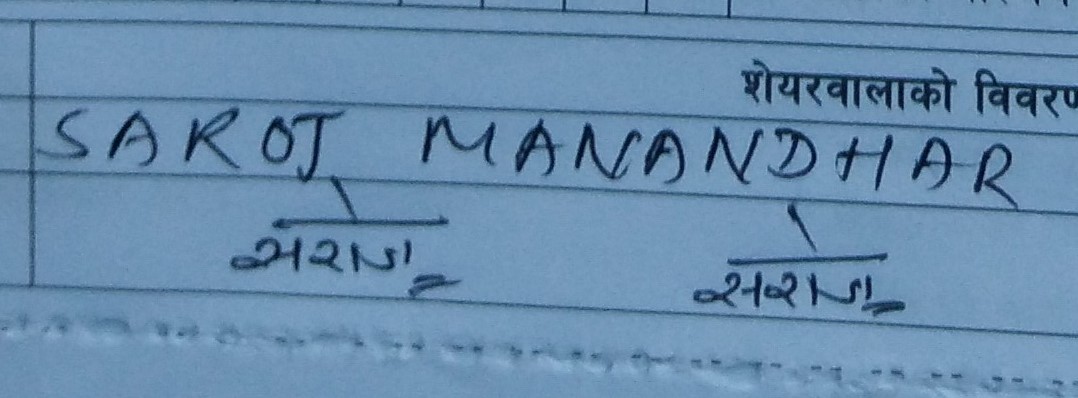 शेयरवालाको विवरण
SAROJ MANANDHAR
सरोज सरोज